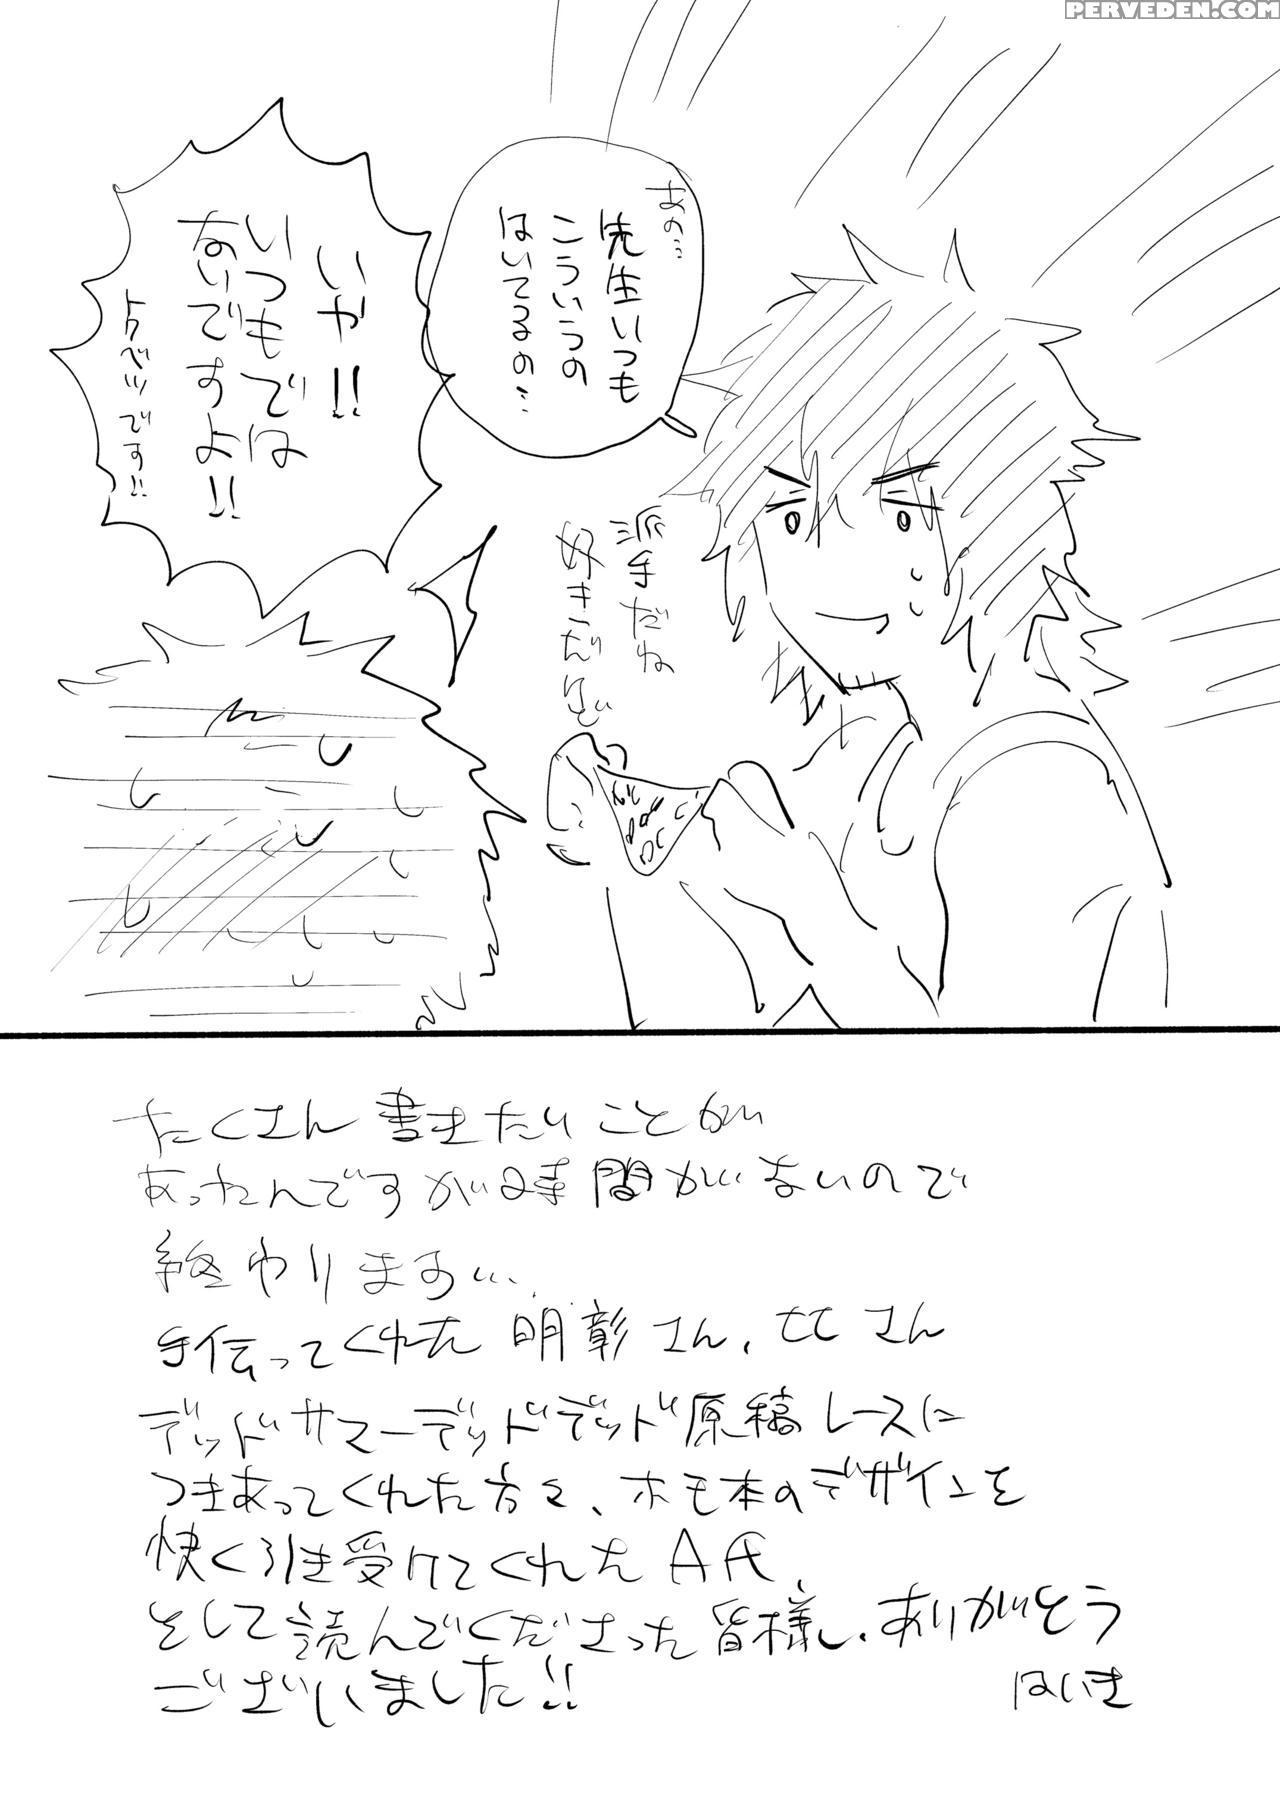 PERVEDEN.COM
あの…
先生いつも
こういうの
はいてるの…
いや!!
いつもでは
ないですよ!!
トクベツです!!
派手だね
好きだけど
たくさん書きたいことが
あったんですが時間がないので
終わります…
手伝ってくれた明彰さん、ヒヒさん
デッドサマーデッドデッド原稿レースに
つきあってくれた方々、ホモ本のデザインを
快く引き受けてくれたA氏
そして読んでくださった皆様、ありがとう
ございました!!
はいき